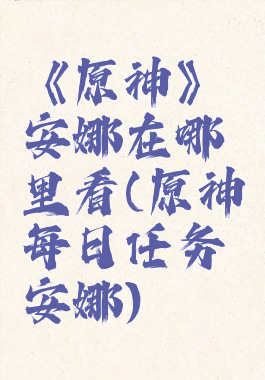 《原神》
安娜在哪
里看(原神
每日任务
安娜)